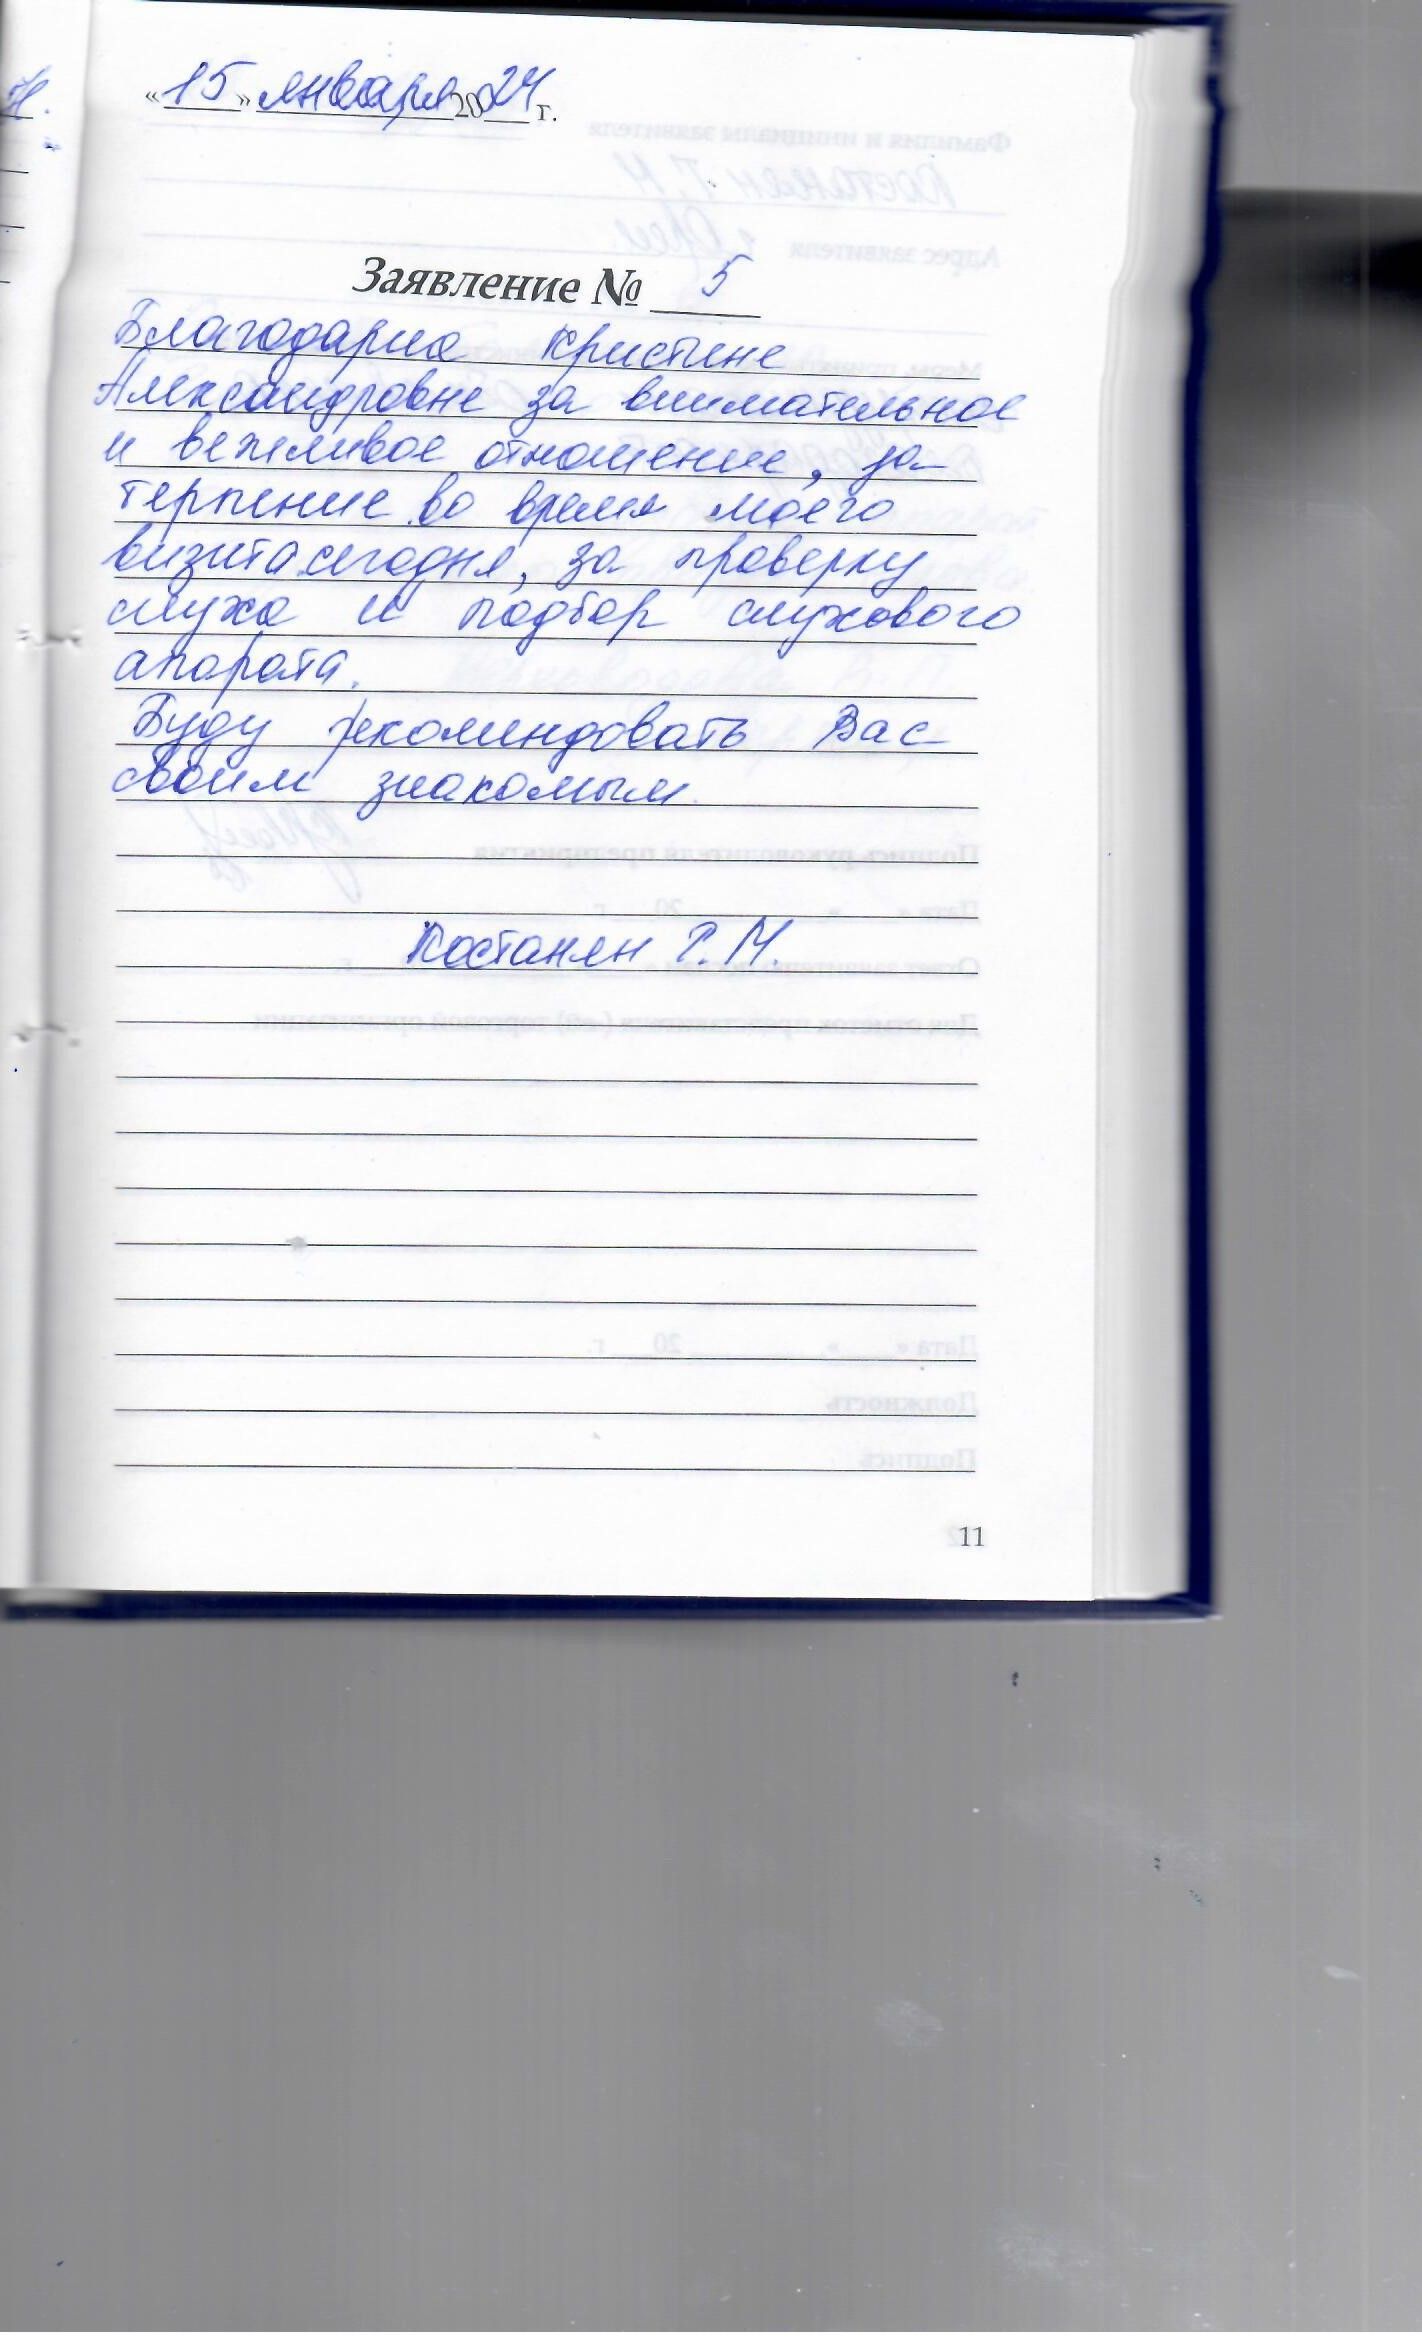 «15» января 2024 г.
Заявление № 5
Благодарна Кристине
Александровне за внимательное
и вежливое отношение, за
терпение во время моего
визита сегодня, за проверку
слуха и подбор слухового
апарата.
Буду рекомендовать Вас
своим знакомым.
Костанян Г. М.
11